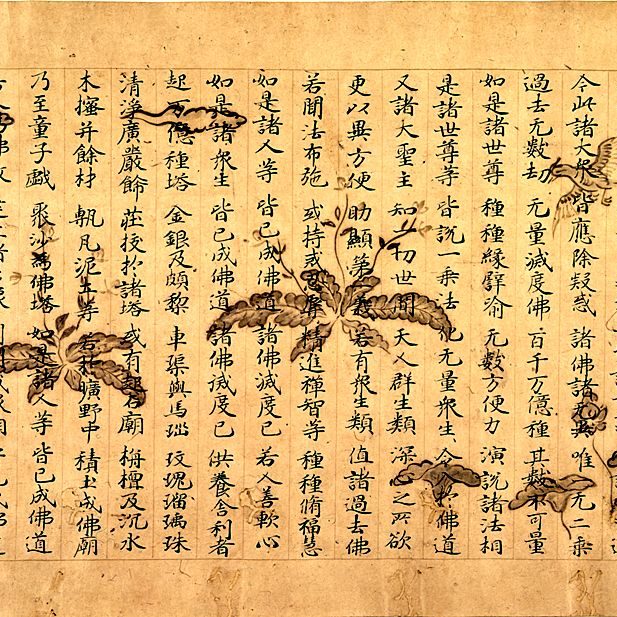 今此諸大衆 皆應除疑惑 諸佛語无異 唯一无二乘
過去无數劫 无量滅度佛 百千万億種 其數不可量
如是諸世尊 種種緣譬喻 无數方便力 演說諸法相
是諸世尊等 皆說一乘法 化无量衆生 令入於佛道
又諸大聖主 知一切世間 天人群生類 深心之所欲
更以異方便 助顯第一義 若有衆生類 值諸過去佛
若聞法布施 或持戒忍辱 精進禪智等 種種脩福慧
如是諸人等 皆已成佛道 諸佛滅度已 若人善軟心
如是諸衆生 皆已成佛道 諸佛滅度已 供養舍利者
起万億種塔 金銀及頗黎 車璖與馬瑙 玫瑰瑠璃珠
清淨廣嚴飾 莊挍於諸塔 或有起石廟 栴檀及沉水
木櫁并餘材 甎瓦泥土等 若於曠野中 積土成佛廟
乃至童子戲 聚沙爲佛塔 如是諸人等 皆已成佛道